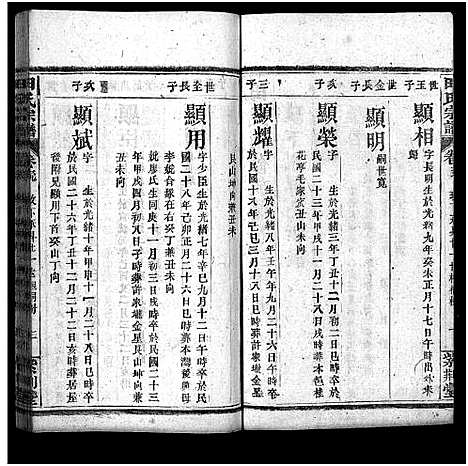 田氏宗譜
世玉子
顯相
字長明生於光緒九年癸未正月十七日午時
歸
顯明
嗣世寬
長子
顯榮
字 生於光緒三年丁丑十二月初二日巳時卒於
民國二十三年甲戌十一月二十八日戌時葬本邑桂
花亭毛家 丑山未向
三子
顯耀
字 生於光緒八年壬午九月二十六日午時卒
於民國十八年己巳三月十八日巳時葬許家壋金星
艮山坤向兼丑未
世金長子
顯用
字少臣生於光緒七年辛巳九月十二日午時卒於民
國二十八年己卯正月二十八日午時葬本灣後
李妣合艅在右癸丁兼丑未向
妣廖氏生同庚十一月初三日戌時卒於民國二十三
年甲戌四月初八日子時葬許家壋金星艮山坤向兼
丑未向
次子
顯斌
字 生於光緒十年甲申十一月二十八日巳時卒
於民國二十六年丁丑十二月二十二日亥時葬居屋
後附兄顯用下首癸山丁向
田氏宗譜
紫荊堂